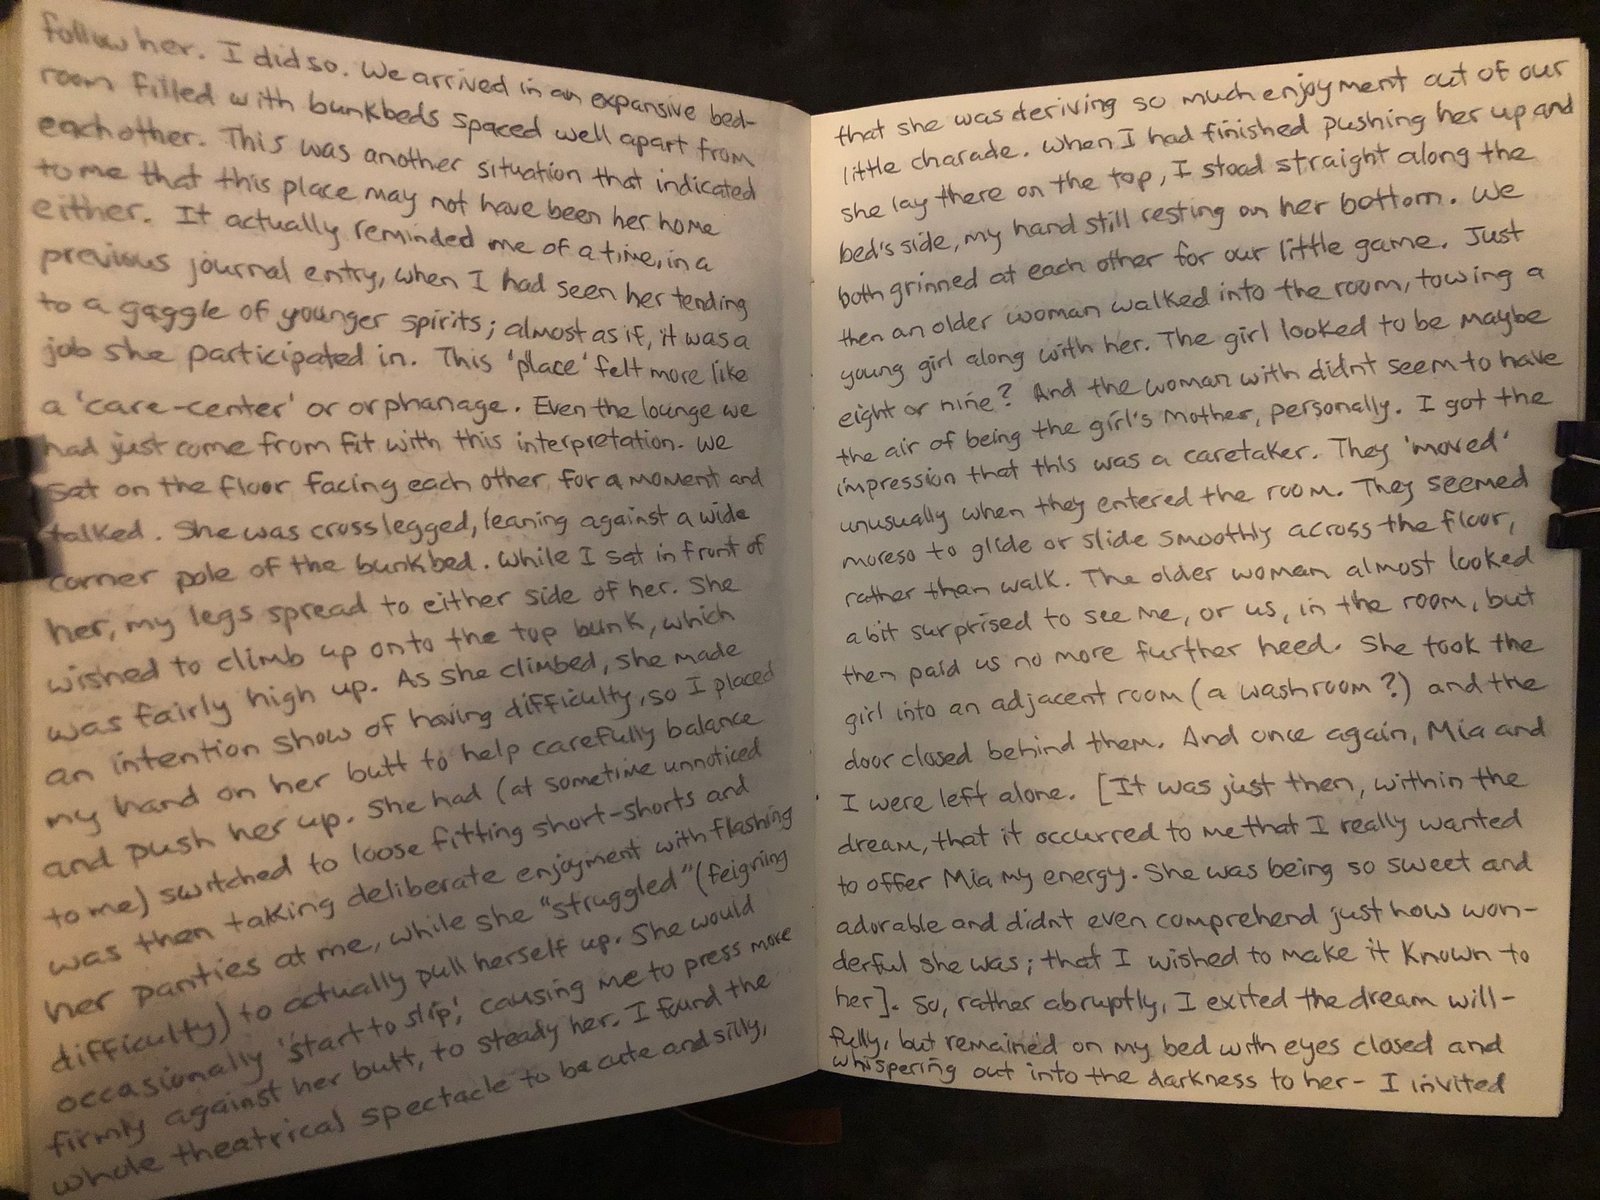 follow her. I did so. We arrived in an expansive bed-
room filled with bunkbeds spaced well apart from
each other. This was another situation that indicated
to me that this place may not have been her home
either. It actually reminded me of a time, in a
previous journal entry, when I had seen her tending
to a gaggle of younger spirits; almost as if, it was a
job she participated in. This 'place' felt more like
a 'care-center' or orphanage. Even the lounge we
had just come from fit with this interpretation. We
sat on the floor facing each other for a moment and
talked. She was cross legged, leaning against a wide
corner pole of the bunkbed. While I sat in front of
her, my legs spread to either side of her. She
wished to climb up onto the top bunk, which
was fairly high up. As she climbed, she made
an intention show of having difficulty, so I placed
my hand on her butt to help carefully balance
and push her up. She had (at sometime unnoticed
to me) switched to loose fitting short-shorts and
was then taking deliberate enjoyment with flashing
her panties at me, while she "struggled" (feigning
difficulty) to actually pull herself up. She would
occasionally 'start to slip,' causing me to press more
firmly against her butt, to steady her. I found the
whole theatrical spectacle to be cute and silly,
that she was deriving so much enjoyment out of our
little charade. When I had finished pushing her up and
she lay there on the top, I stood straight along the
bed's side, my hand still resting on her bottom. We
both grinned at each other for our little game. Just
then an older woman walked into the room, towing a
young girl along with her. The girl looked to be maybe
eight or nine? And the woman with didnt seem to have
the air of being the girl's mother, personally. I got the
impression that this was a caretaker. They 'moved'
unusually when they entered the room. They seemed
moreso to glide or slide smoothly across the floor,
rather than walk. The older woman almost looked
a bit surprised to see me, or us, in the room, but
then paid us no more further heed. She took the
girl into an adjacent room (a washroom?) and the
door closed behind them. And once again, Mia and
I were left alone. [It was just then, within the
dream, that it occurred to me that I really wanted
to offer Mia my energy. She was being so sweet and
adorable and didnt even comprehend just how won-
derful she was; that I wished to make it known to
her]. So, rather abruptly, I exited the dream will-
fully, but remained on my bed with eyes closed and
whispering out into the darkness to her - I invited